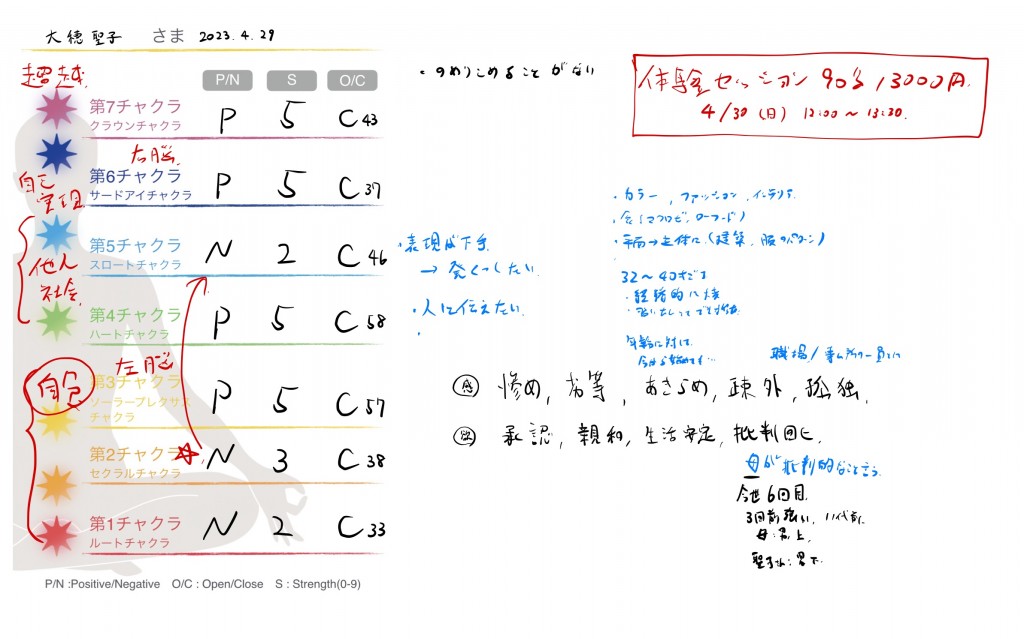 大穂聖子 さま 2023.4.29
超越
P/N S O/C
第7チャクラ
クラウンチャクラ
P 5 C43
右脳
第6チャクラ
サードアイチャクラ
P 5 C37
自己
実現
第5チャクラ
スロートチャクラ
N 2 C46
他人
社会
第4チャクラ
ハートチャクラ
P 5 C58
左脳
自分
第3チャクラ
ソーラープレクサス
チャクラ
P 5 C57
第2チャクラ
セクラルチャクラ
N 3 C38
第1チャクラ
ルートチャクラ
N 2 C33
P/N :Positive/Negative O/C : Open/Close S : Strength(0-9)
・のめりこめることがない
体験セッション 90分 13000円.
4/30(日) 12:00～13:30.
・カラー, ファッション, インテリア
・食(マクロビ, ローフード)
・平面→立体に(建築, 服のパターン)
・表現が下手
→ 発くつしたい.
・人に伝えたい.
32～40才
・経済的に
年齢に対し
今から始めても…
職場/
感 惨め, 劣等, あきらめ, 疎外, 孤独.
欲 承認, 親和, 生活安定, 批判回ヒ.
母が批判的なこと言う
今世6回目.
3回前強い, 11代前に
母:男上,
聖子さん:男下.